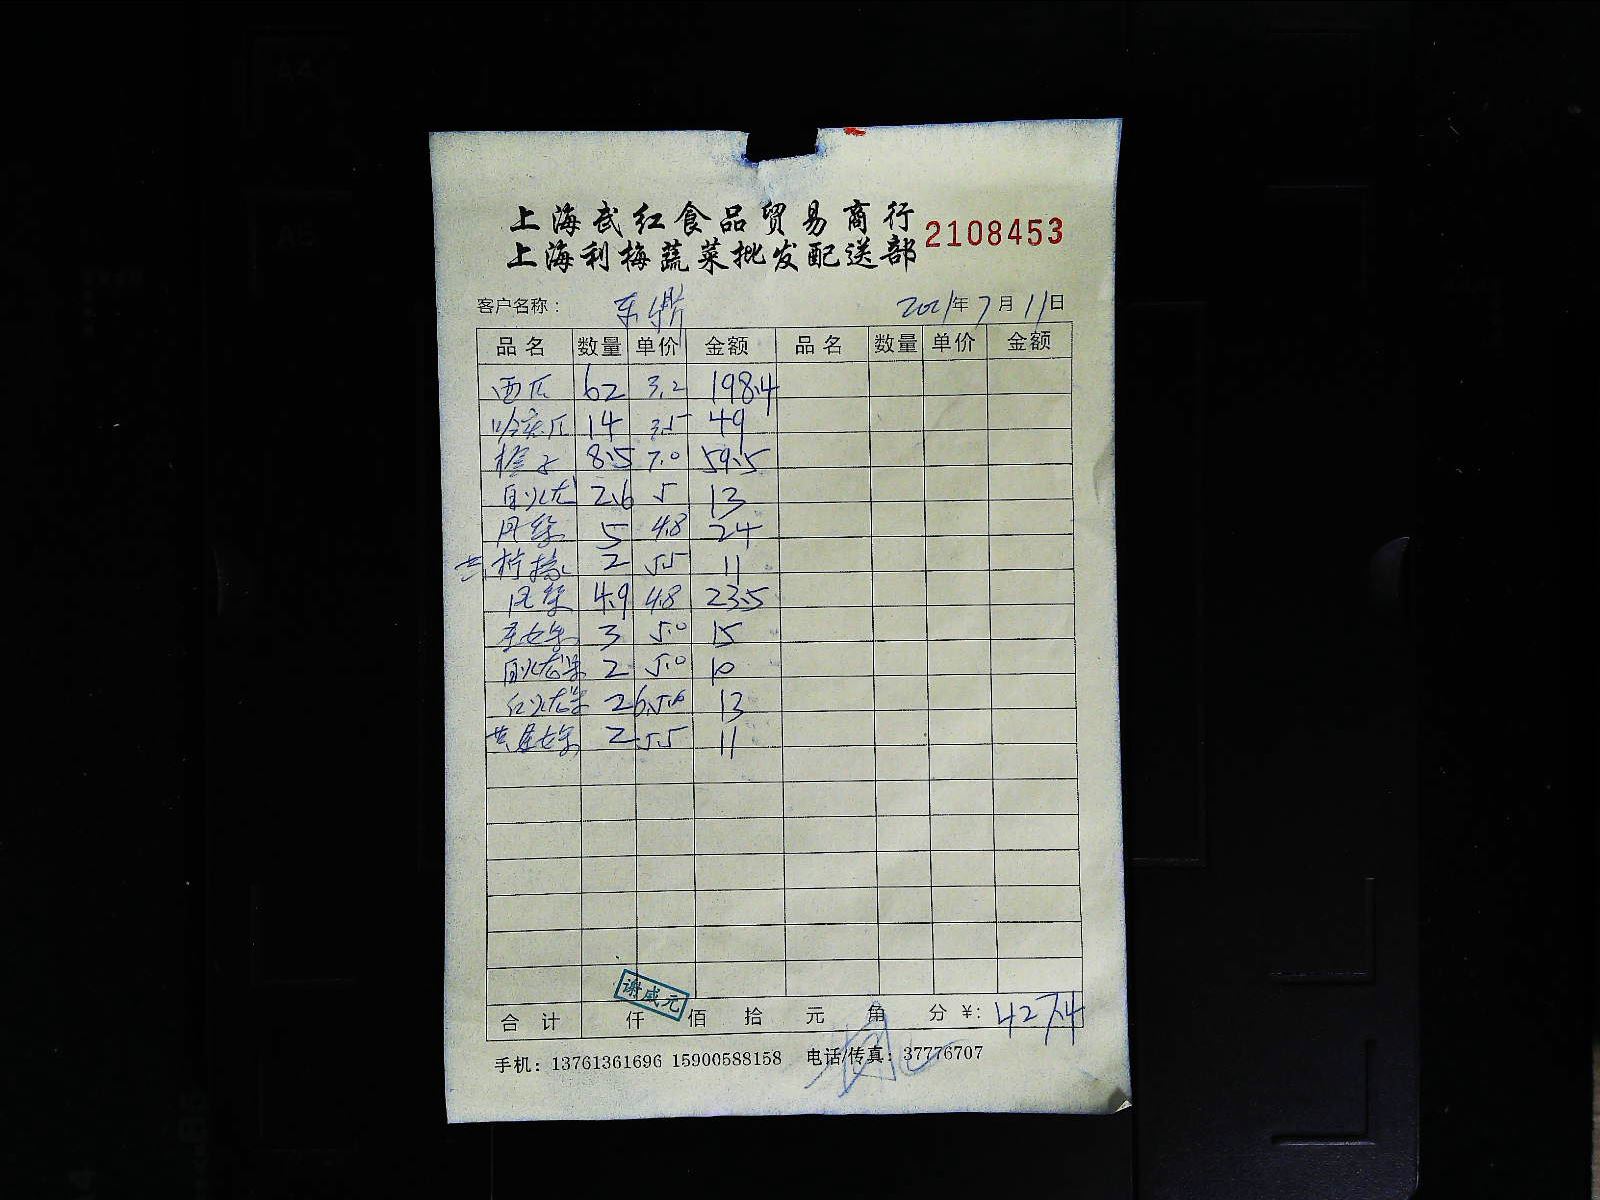 上海武红食品贸易商行
上海利梅蔬菜批发配送部 2108453
客户名称: 东鼎 2021年7月11日
品名 数量 单价 金额 品名 数量 单价 金额
西瓜 62 3.2 198.4
哈密瓜 14 3.5 49
橙子 8.5 7.0 59.5
白火龙 2.6 5 13
5 4.8 24
柠檬 2 5.5 11
4.9 4.8 23.5
圣女果 3 5.0 15
白火龙果 2 5.0 10
红火龙果 2.6 5.0 13
黄圣女果 2 5.5 11
谢威元
合计 仟 佰 拾 元 角 分 ¥: 427.4
手机: 13761361696 15900588158 电话/传真: 37776707